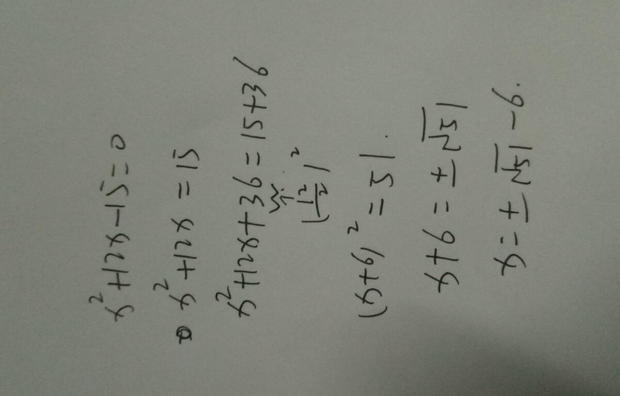 x²+12x-15=0
x²+12x=15
x²+12x+36=15+36
(12/2)²
(x+6)²=51.
x+6=±√51
x=±√51-6.